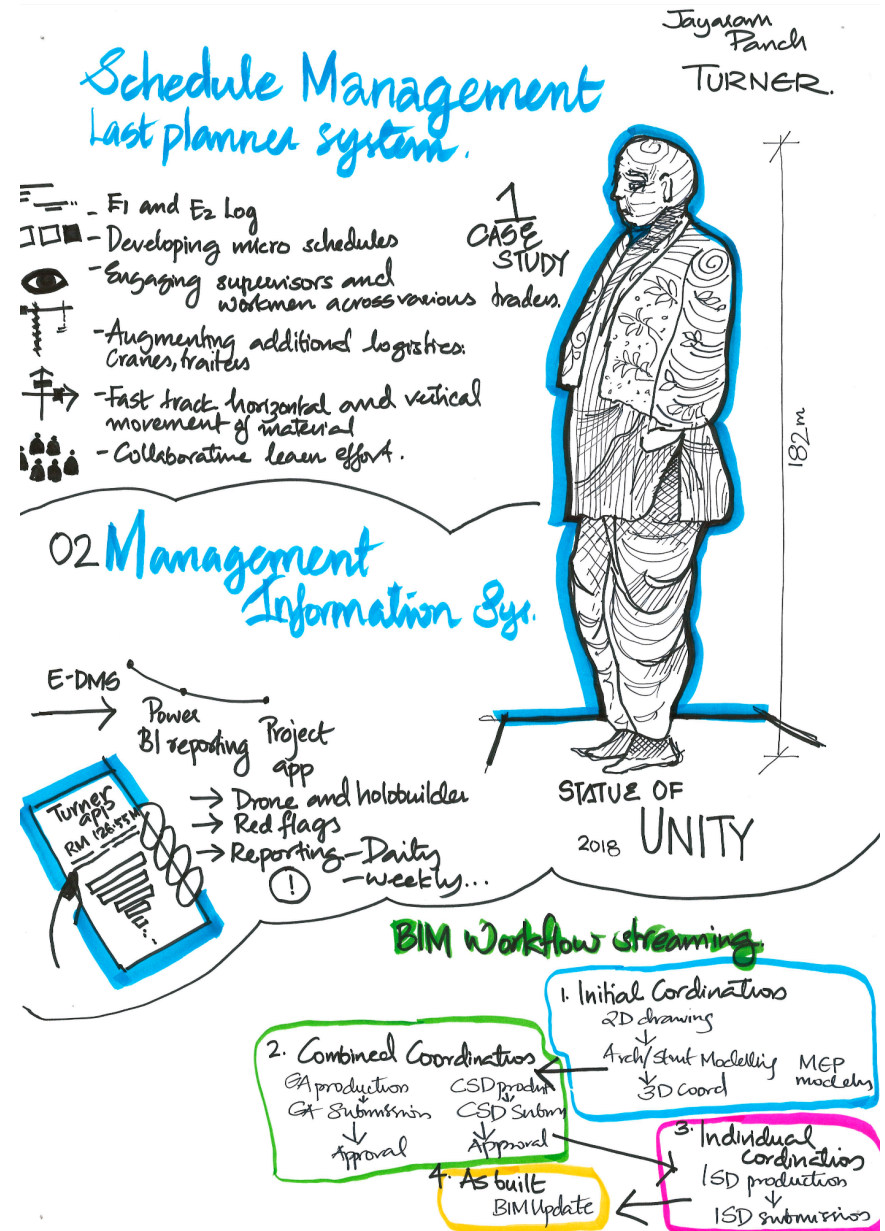 Jayaram
Panch
TURNER.
Schedule Management
Last planner system.
- E1 and E2 Log
- Developing micro schedules
- Engaging supervisors and
workmen across various traders.
- Augmenting additional logistics:
Cranes, trailers
- Fast track horizontal and vertical
movement of material
- Collaborative team effort.
1
CASE
STUDY
182m
STATUE OF
2018 UNITY
02 Management
Information Sys.
E-DMS
Power
BI reporting
Project
app
→ Drone and holobuilder
→ Red flags
→ Reporting - Daily
- weekly...
!
Turner
RM 126.55M
BIM Workflow streaming.
1. Initial Cordination
2D drawing
↓
Arch/Strut Modelling
↓
3D Coord
MEP
models
2. Combined Coordination
GA production
↓
GA Submission
↓
Approval
CSD produt
↓
CSD Subm
↓
Approval
3. Individual
Cordination
ISD production
↓
ISD submission
4. As built
BIM Update